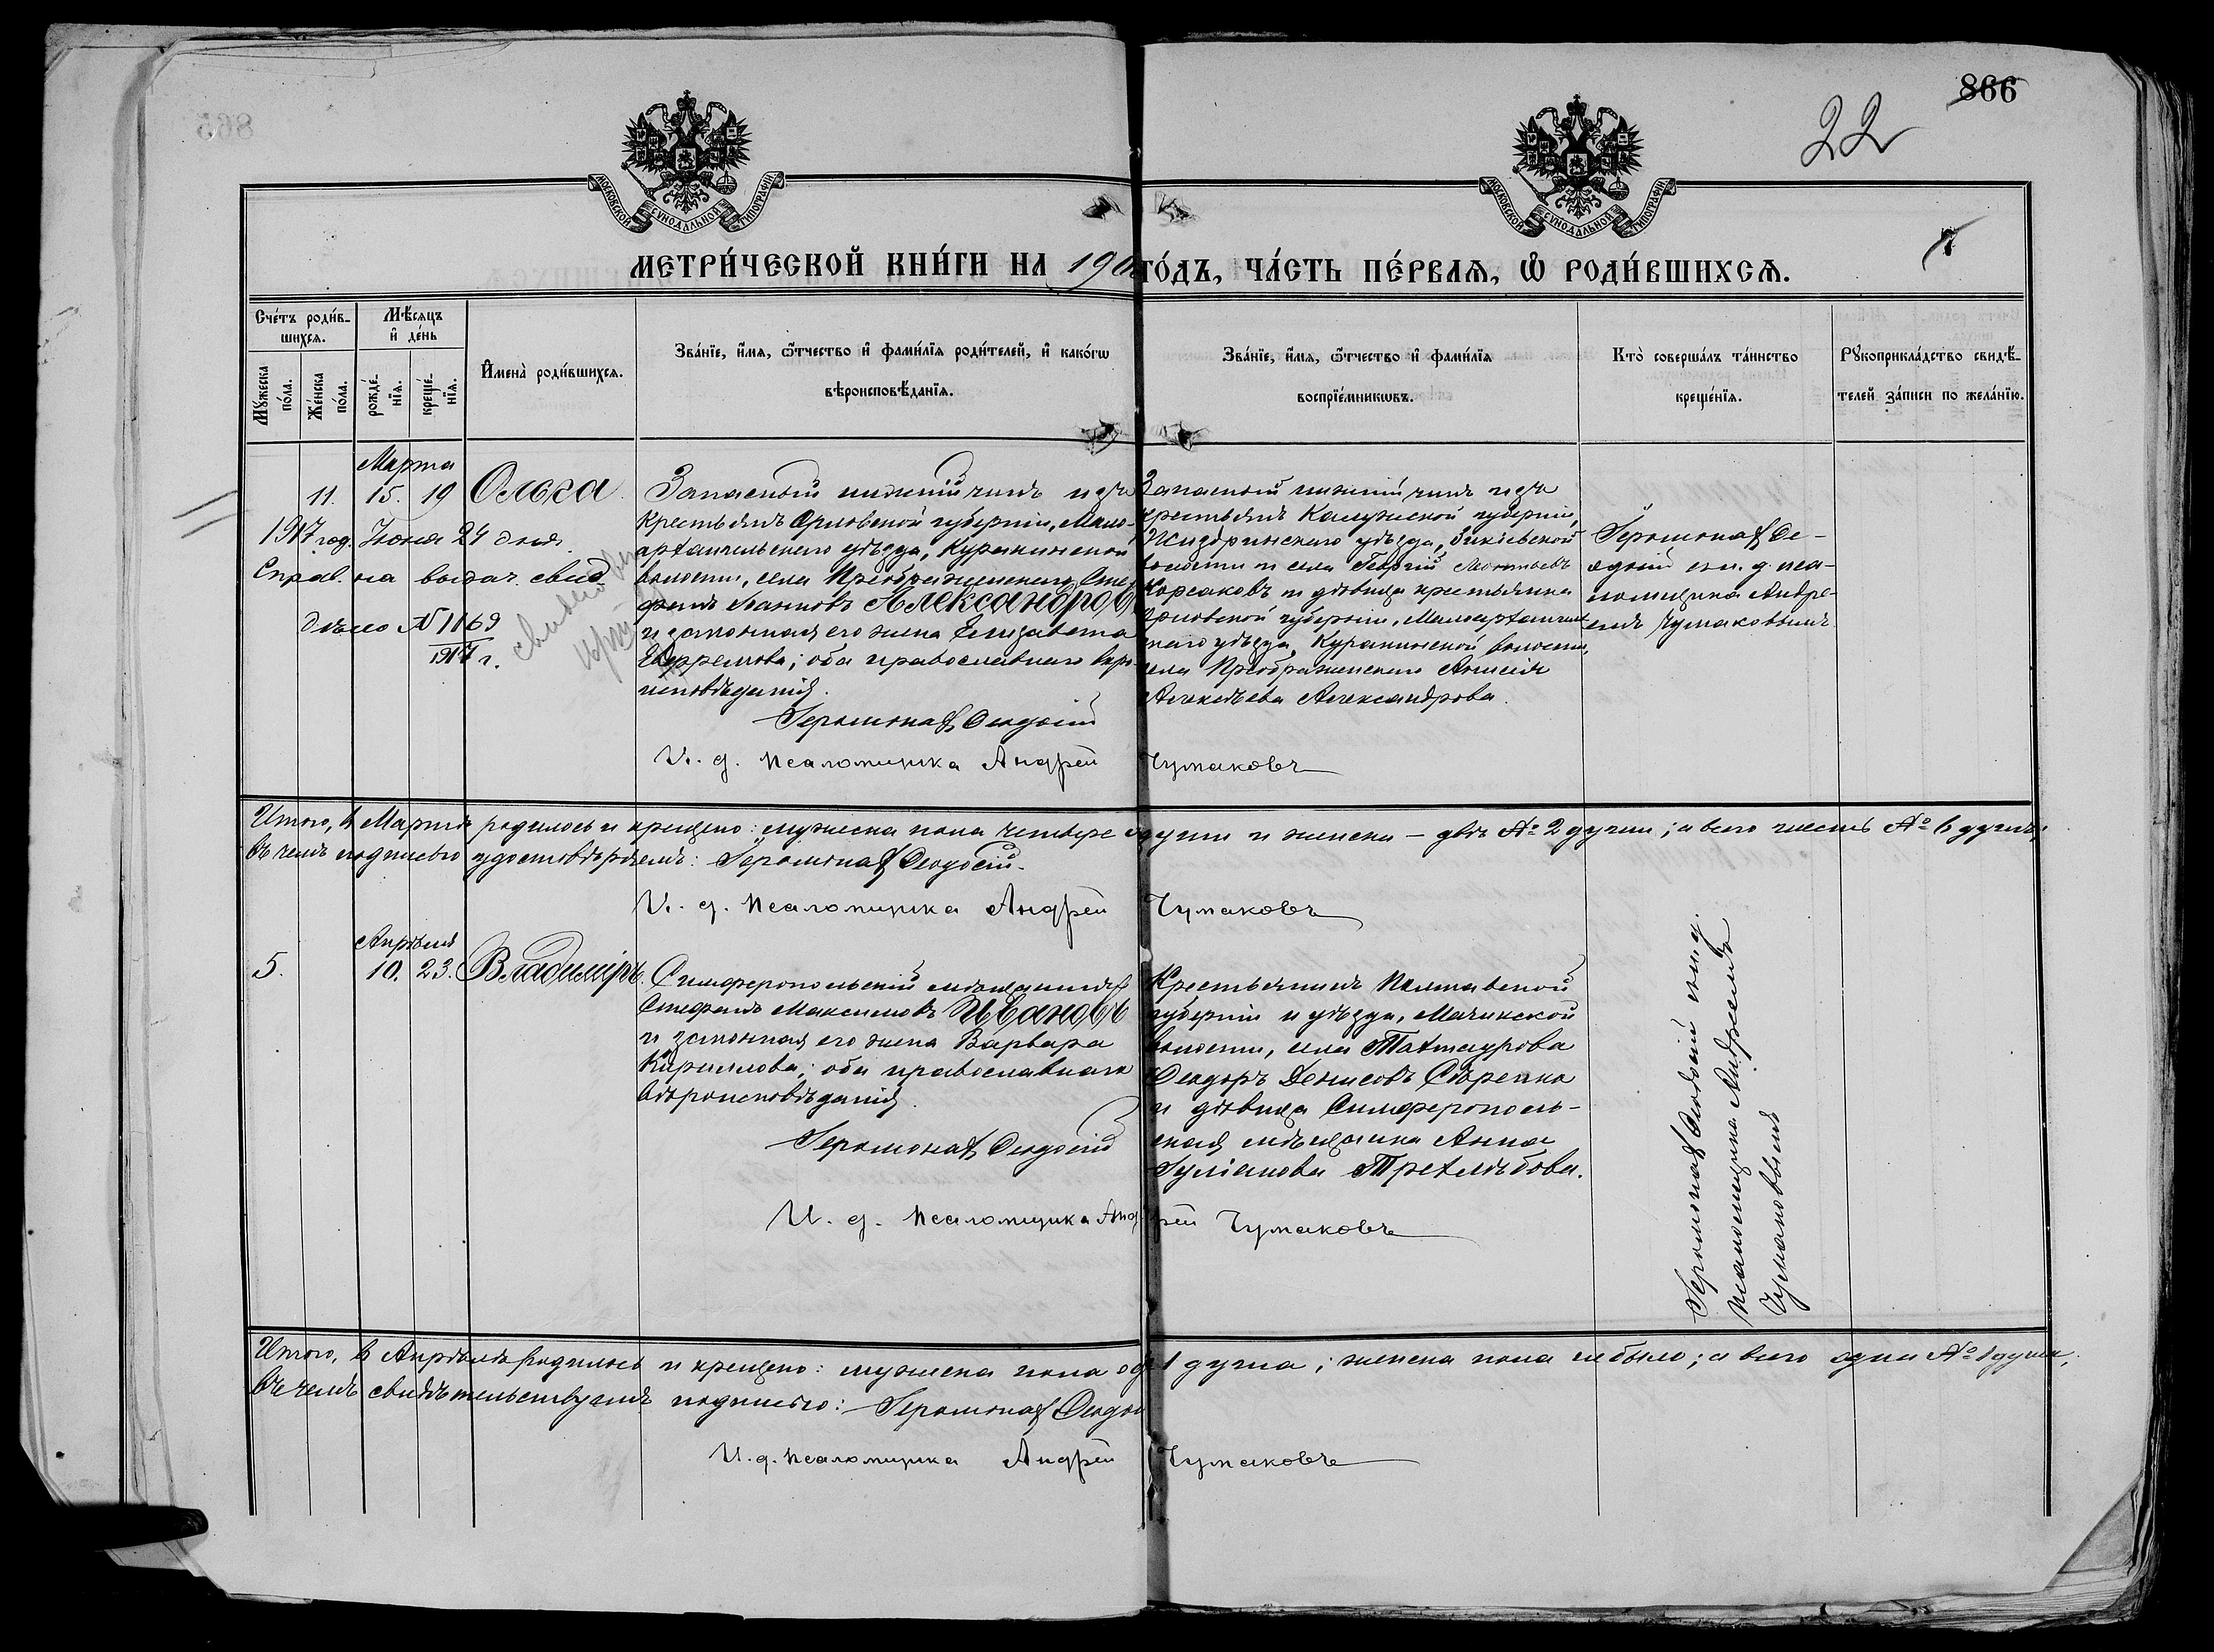 865
866
22
МОСКОВСКОЙ СѴНОДАЛЬНОЙ ТИПОГРАФІИ
МОСКОВСКОЙ СѴНОДАЛЬНОЙ ТИПОГРАФІИ
МЕТРИ́ЧЕСКОЙ КНИ́ГИ НА 190
ГО́ДЪ, ЧА́СТЬ ПЕ́РВАѦ, Ѡ РОДИ́ВШИХСѦ.
Сче́тъ роди́в-
шихсѧ.
Мꙋ́жеска по́ла.
Же́нска по́ла.
Мѣ́сѧцъ и҆ де́нь
рожде́-
нїѧ.
креще́-
нїѧ.
И҆мена̀ роди́вшихсѧ.
Зва́нїе, и҆́мѧ, ѻ҆́тчество и҆ фами́лїѧ роди́телей, и҆ како́гѡ
вѣроисповѣ́данїѧ.
Зва́нїе, и҆́мѧ, ѻ҆́тчество и҆ фами́лїѧ
воспрїе́мникѡвъ.
Кто̀ соверша́лъ та́инство
креще́нїѧ.
Рꙋкоприкла́дство свидѣ́-
телей за́писи по жела́нїю.
Марта
11. 15. 19 Ольга
1917 год. Юоня 24 дня.
Справ. на выдач. свид.
дѣло № 1169
1917 г.
Запасный нижній чинъ изъ
крестьянъ Орловской губерніи, Мало-
архангельскаго уѣзда, Куракинской
волости, села Преображенскаго Сте-
фанъ Іоанновъ Александровъ
и законная его жена Елизавета
Евфремова; оба православнаго вѣро-
исповѣданія.
Іеромонахъ Ѳеодосій
И. д. псаломщика Андрей Чумаковъ
Запасный нижній чинъ изъ
крестьянъ Калужской губерніи,
Жиздринскаго уѣзда,
волости и села Георгій Леонтьевъ
Корсаковъ и дѣвица крестьянка
Орловской губерніи, Малоархангель-
скаго уѣзда, Куракинской волости,
села Преображенскаго Анисія
Алексѣева Александрова.
Іеромонахъ Ѳе-
одосій съ и. д. пса-
ломщика Андре-
емъ Чумаковымъ.
Итого, въ Мартѣ родилось и крещено: мужеска пола четыре души и женска – двѣ № 2 души; а всего шесть № 6 душъ;
въ чемъ подписью удостовѣряемъ: Іеромонахъ Ѳеодосій.
И. д. псаломщика Андрей Чумаковъ
Апрѣля
5. 10. 23. Владиміръ.
Симферопольскій мѣщанинъ
Стефанъ Максимовъ Ивановъ
и законная его жена Варвара
Кириллова; оба православнаго
вѣроисповѣданія.
Іеромонахъ Ѳеодосій
И. д. псаломщика Андрей Чумаковъ
Крестьянинъ Полтавской
губерніи и уѣзда, Мачихской
волости, села Тахтаурова
Ѳеодоръ Денисовъ Сѣренко
и дѣвица Симферополь-
ская мѣщанка Анна
Іуліанова Трехлѣбова.
Іеромонахъ Ѳеодосій съ и. д.
псаломщика Андреемъ
Чумаковымъ
Итого, въ Апрѣлѣ родилось и крещено: мужеска пола одна 1 душа; женска пола не было; а всего одна № 1 душа,
въ чемъ свидѣтельствуемъ подписью: Іеромонахъ Ѳеодосій
И. д. псаломщика Андрей Чумаковъ